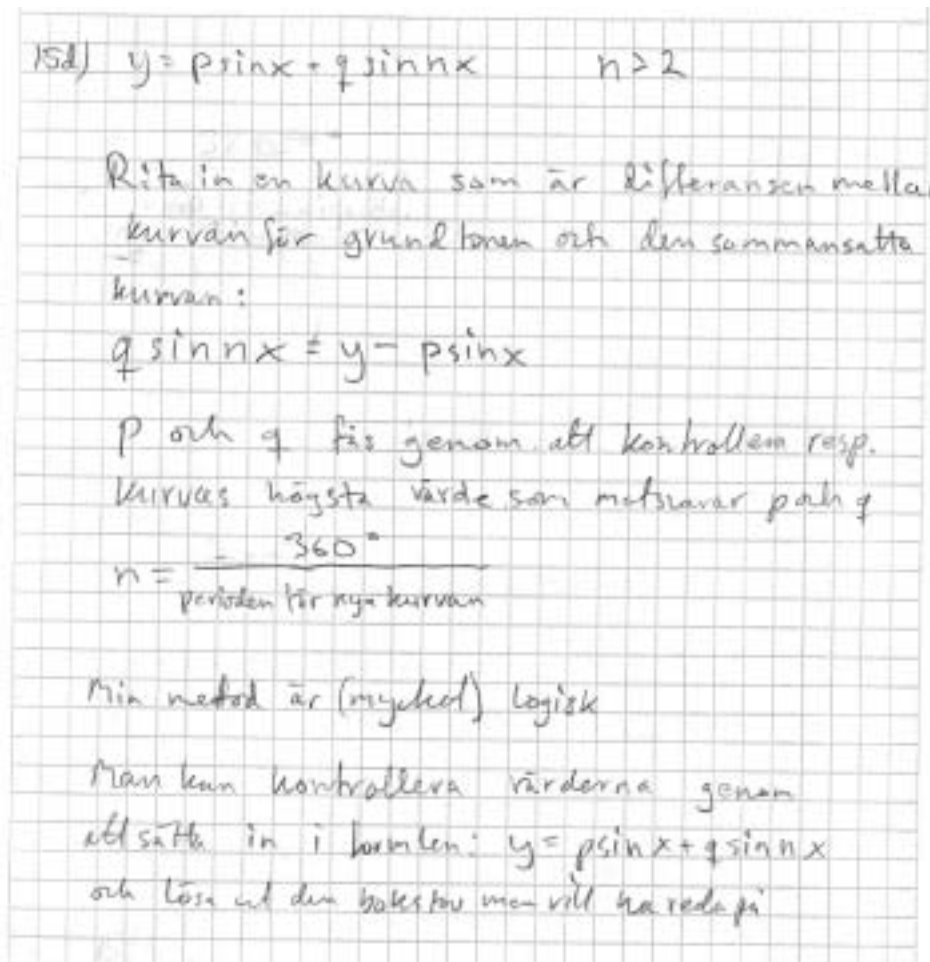 15d) y = psinx + q sinnx n ≥ 2
Rita in en kurva som är differansen mella
kurvan för grundtonen och den sammansatta
kurvan:
q sinnx = y - psinx
p och q fås genom att kontrollera resp.
kurvas högsta värde som motsvarar p och q
n = 360°
perioden för nya kurvan
Min metod är (mycket) logisk
Man kan kontrollera värderna genom
att sätta in i formlen: y = psinx + q sinnx
och lösa ut den bokstav man vill ha reda på